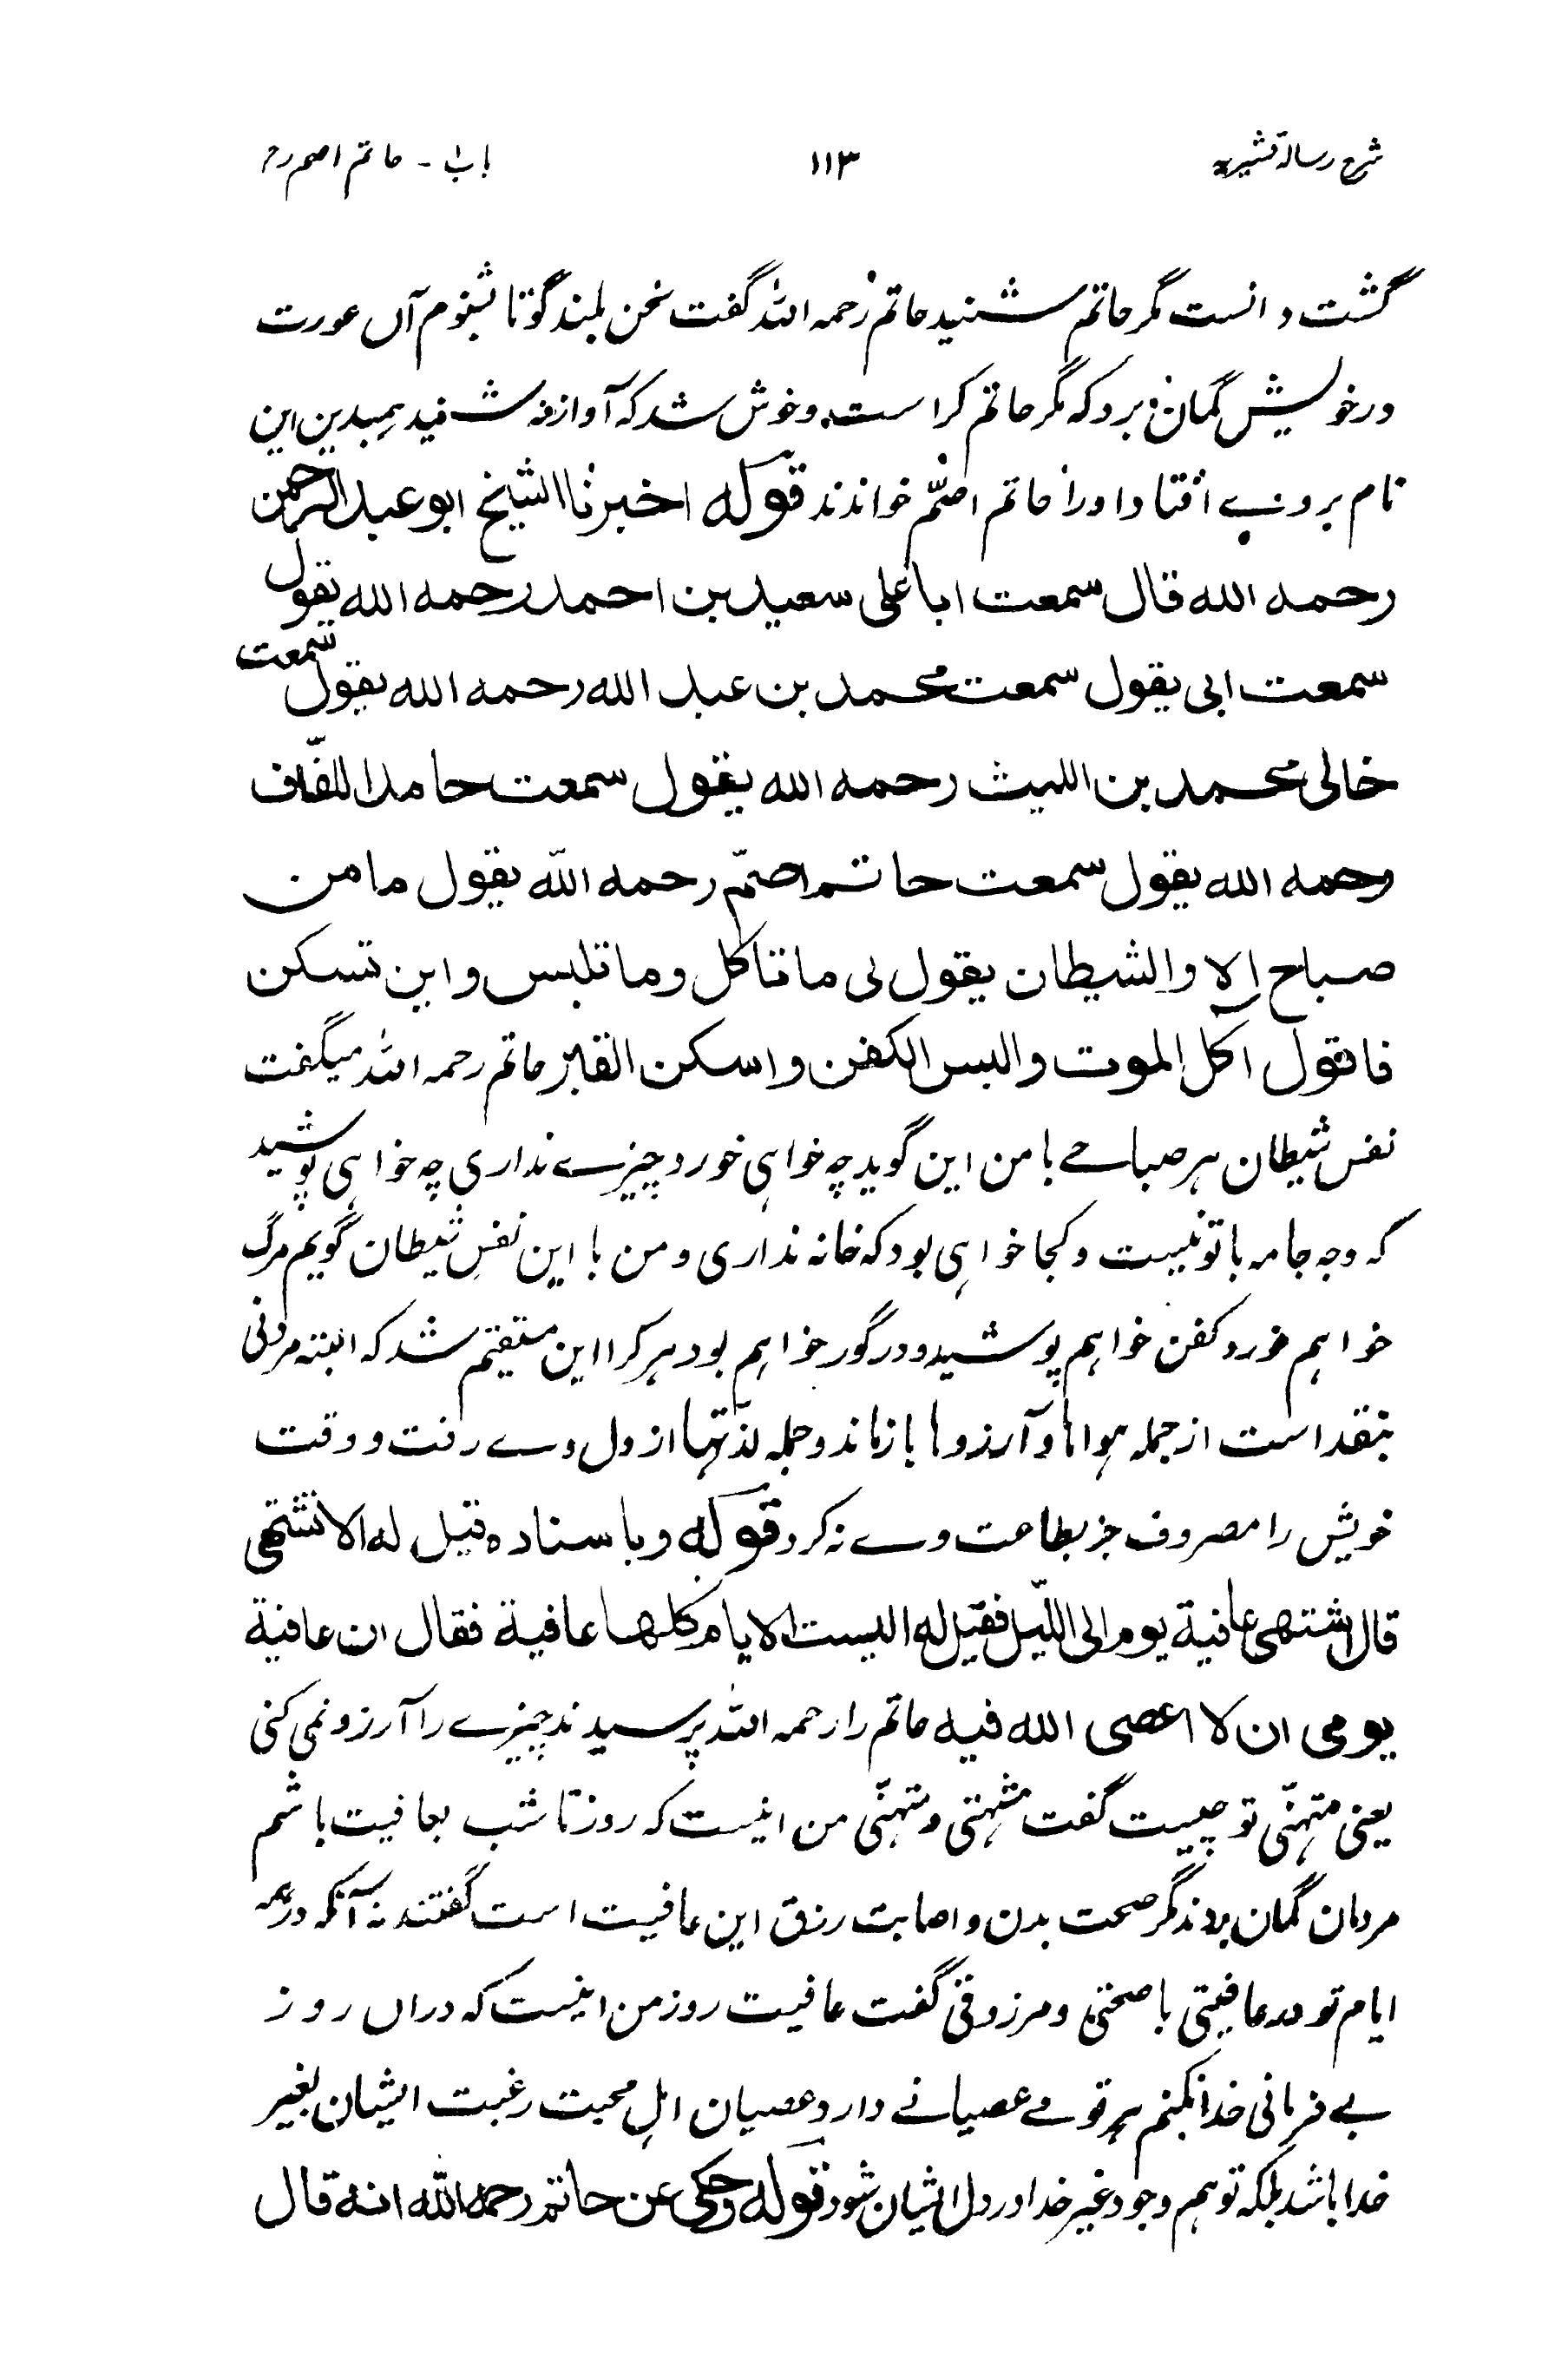 شرح رسالۂ قشیریہ ۱۱۳ باب ۱ - حاتم اصم رح
گشت دانست مگر حاتم شنید حاتم رحمہ اللہ گفت سخن بلند گو تا بشنوم آں عورت
در خویش گمان برد کہ مگر حاتم کر است و خوش شد کہ آواز نہ شنید ہمبدین این
نام بروے افتاد اورا حاتم اصمّ خواندند قوله اخبرنا الشيخ ابو عبد الرحمن
رحمه الله قال سمعت ابا على سعيد بن احمد رحمه الله يقول
سمعت ابى يقول سمعت محمد بن عبد الله رحمه الله يقول سمعت
خالى محمد بن الليث رحمه الله يقول سمعت حامدا اللفّاف
رحمه الله يقول سمعت حاتم اصمّ رحمه اللّه يقول ما من
صباح الا والشيطان يقول لى ما تاكل وما تلبس واين تسكن
فاقول آكل الموت والبس الكفن واسكن القبر حاتم رحمہ اللہ میگفت
نفس شیطان ہر صباحے با من این گوید چہ خواہی خورد چیزے نداری چہ خواہی پوشید
کہ وجہ جامہ با تو نیست و کجا خواہی بود کہ خانہ نداری و من با این نفسِ شیطان گویم مرگ
خواہم خورد کفن خواہم پوشید و در گور خواہم بود ہر کرا این متیقّم شد کہ البتہ مردنی
بنقد است از جملہ ہواہا و آرزوہا باز ماند و جملہ لذّتہا از دل وے رفت و وقت
خویش را مصروف جز بطاعت وے نہ کرد قوله وباسناده قيل له الا تشتهى
قال اشتهى عافية يوم الى اللّيل فقيل له اليست الايام كلها عافية فقال ان عافية
يومى ان لا اعصى الله فيه حاتم را رحمہ اللہ پرسیدند چیزے را آرزو نمی کنی
یعنی متہنّی تو چیست گفت مشتہی و متہنّی من اینست کہ روز تا شب بعافیت باشم
مردمان گمان بردند مگر صحت بدن و اصابت رزق این عافیت است گفتند نہ آنکہ در ہمہ
ایام تو در عافیتی با صحتی و مرزوقی گفت عافیت روز من اینست کہ دراں روز
بے فرمانی خدا نکنم ہر قومے عصیانے دارد عصیان اہل محبت رغبت ایشان بغیر
خدا باشد بلکہ توہم وجود غیر خدا در دل ایشان شود قوله وحكى عن حاتم رحمه الله انه قال